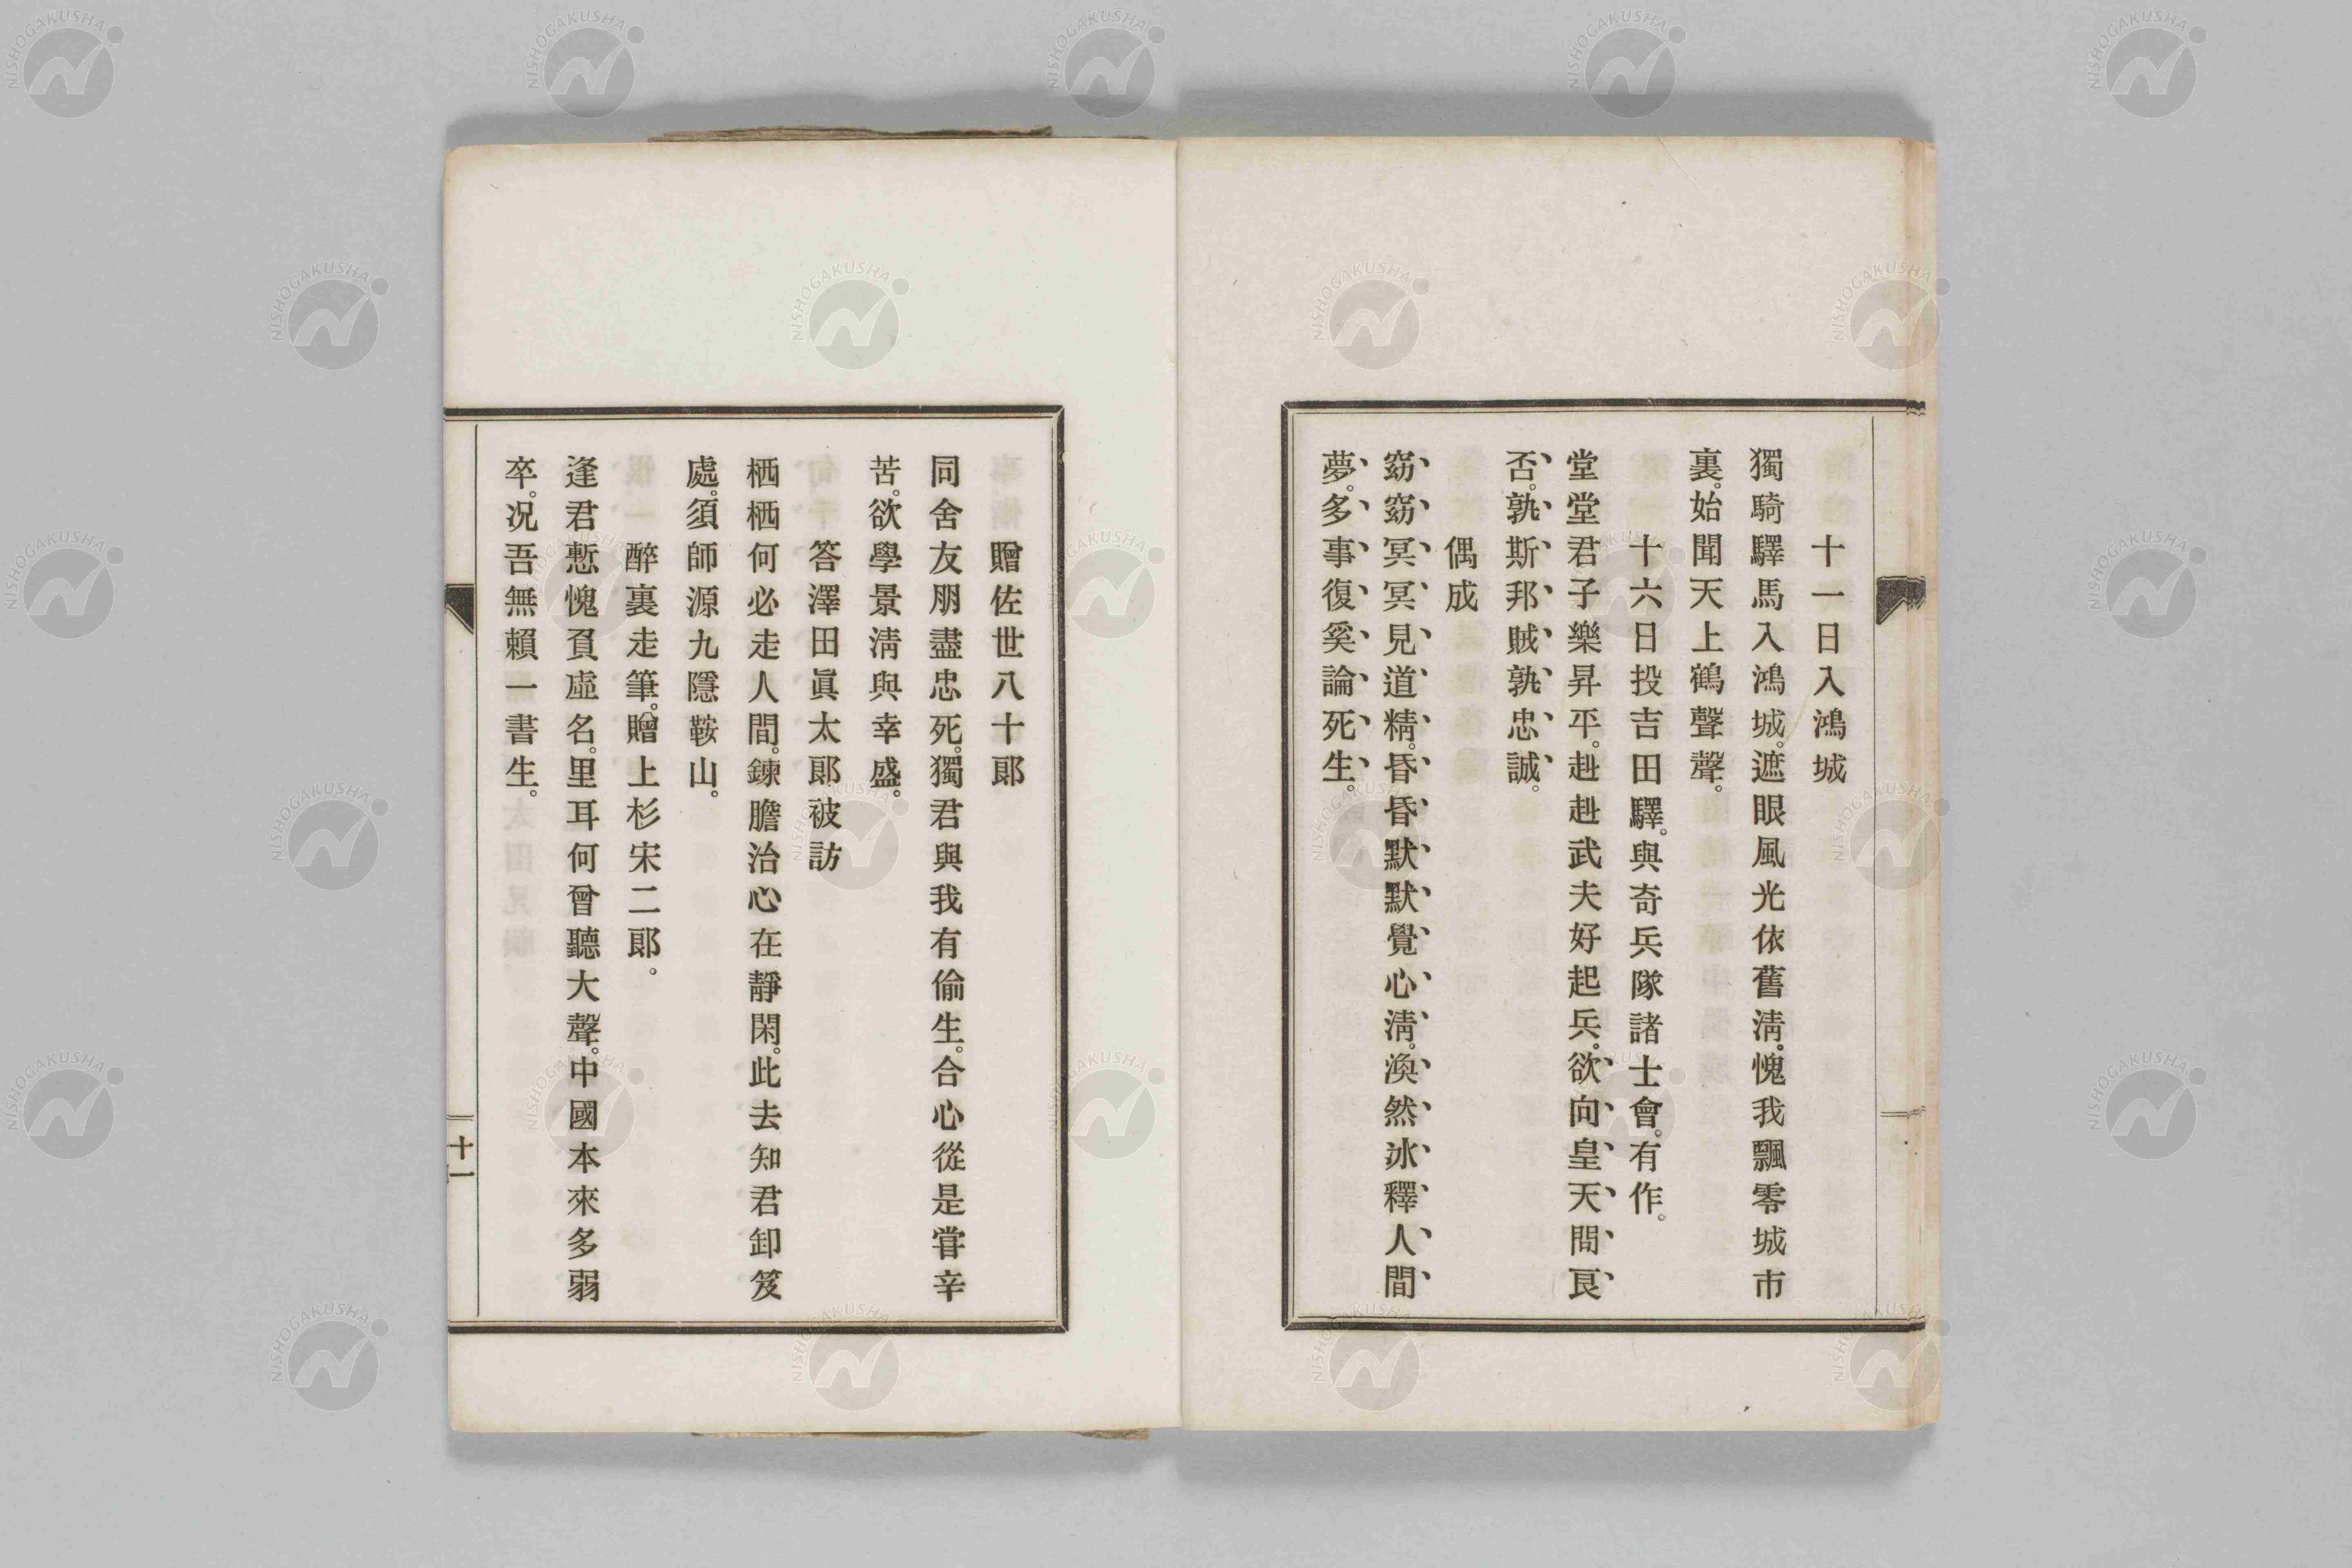 十一日入鴻城
獨騎驛馬入鴻城。遮眼風光依舊淸。愧我飄零城市
裏。始聞天上鶴聲聲。
十六日投吉田驛。與奇兵隊諸士會。有作。
堂堂君子樂昇平。赳赳武夫好起兵。欲向皇天問良
否。孰斯邦賊孰忠誠。
偶成
窈窈冥冥見道精。昏昏默默覺心淸。渙然氷釋人間
夢。多事復奚論死生。
贈佐世八十郞
同舍友朋盡忠死。獨君與我有偷生。合心從是甞辛
苦。欲學景淸與幸盛。
答澤田眞太郞被訪
栖栖何必走人間。鍊膽治心在靜閑。此去知君卸笈
處。須師源九隱鞍山。
醉裏走筆。贈上杉宋二郞。
逢君慙愧負虛名。里耳何曾聽大聲。中國本來多弱
卒。况吾無賴一書生。
十一
NISHOGAKUSHA